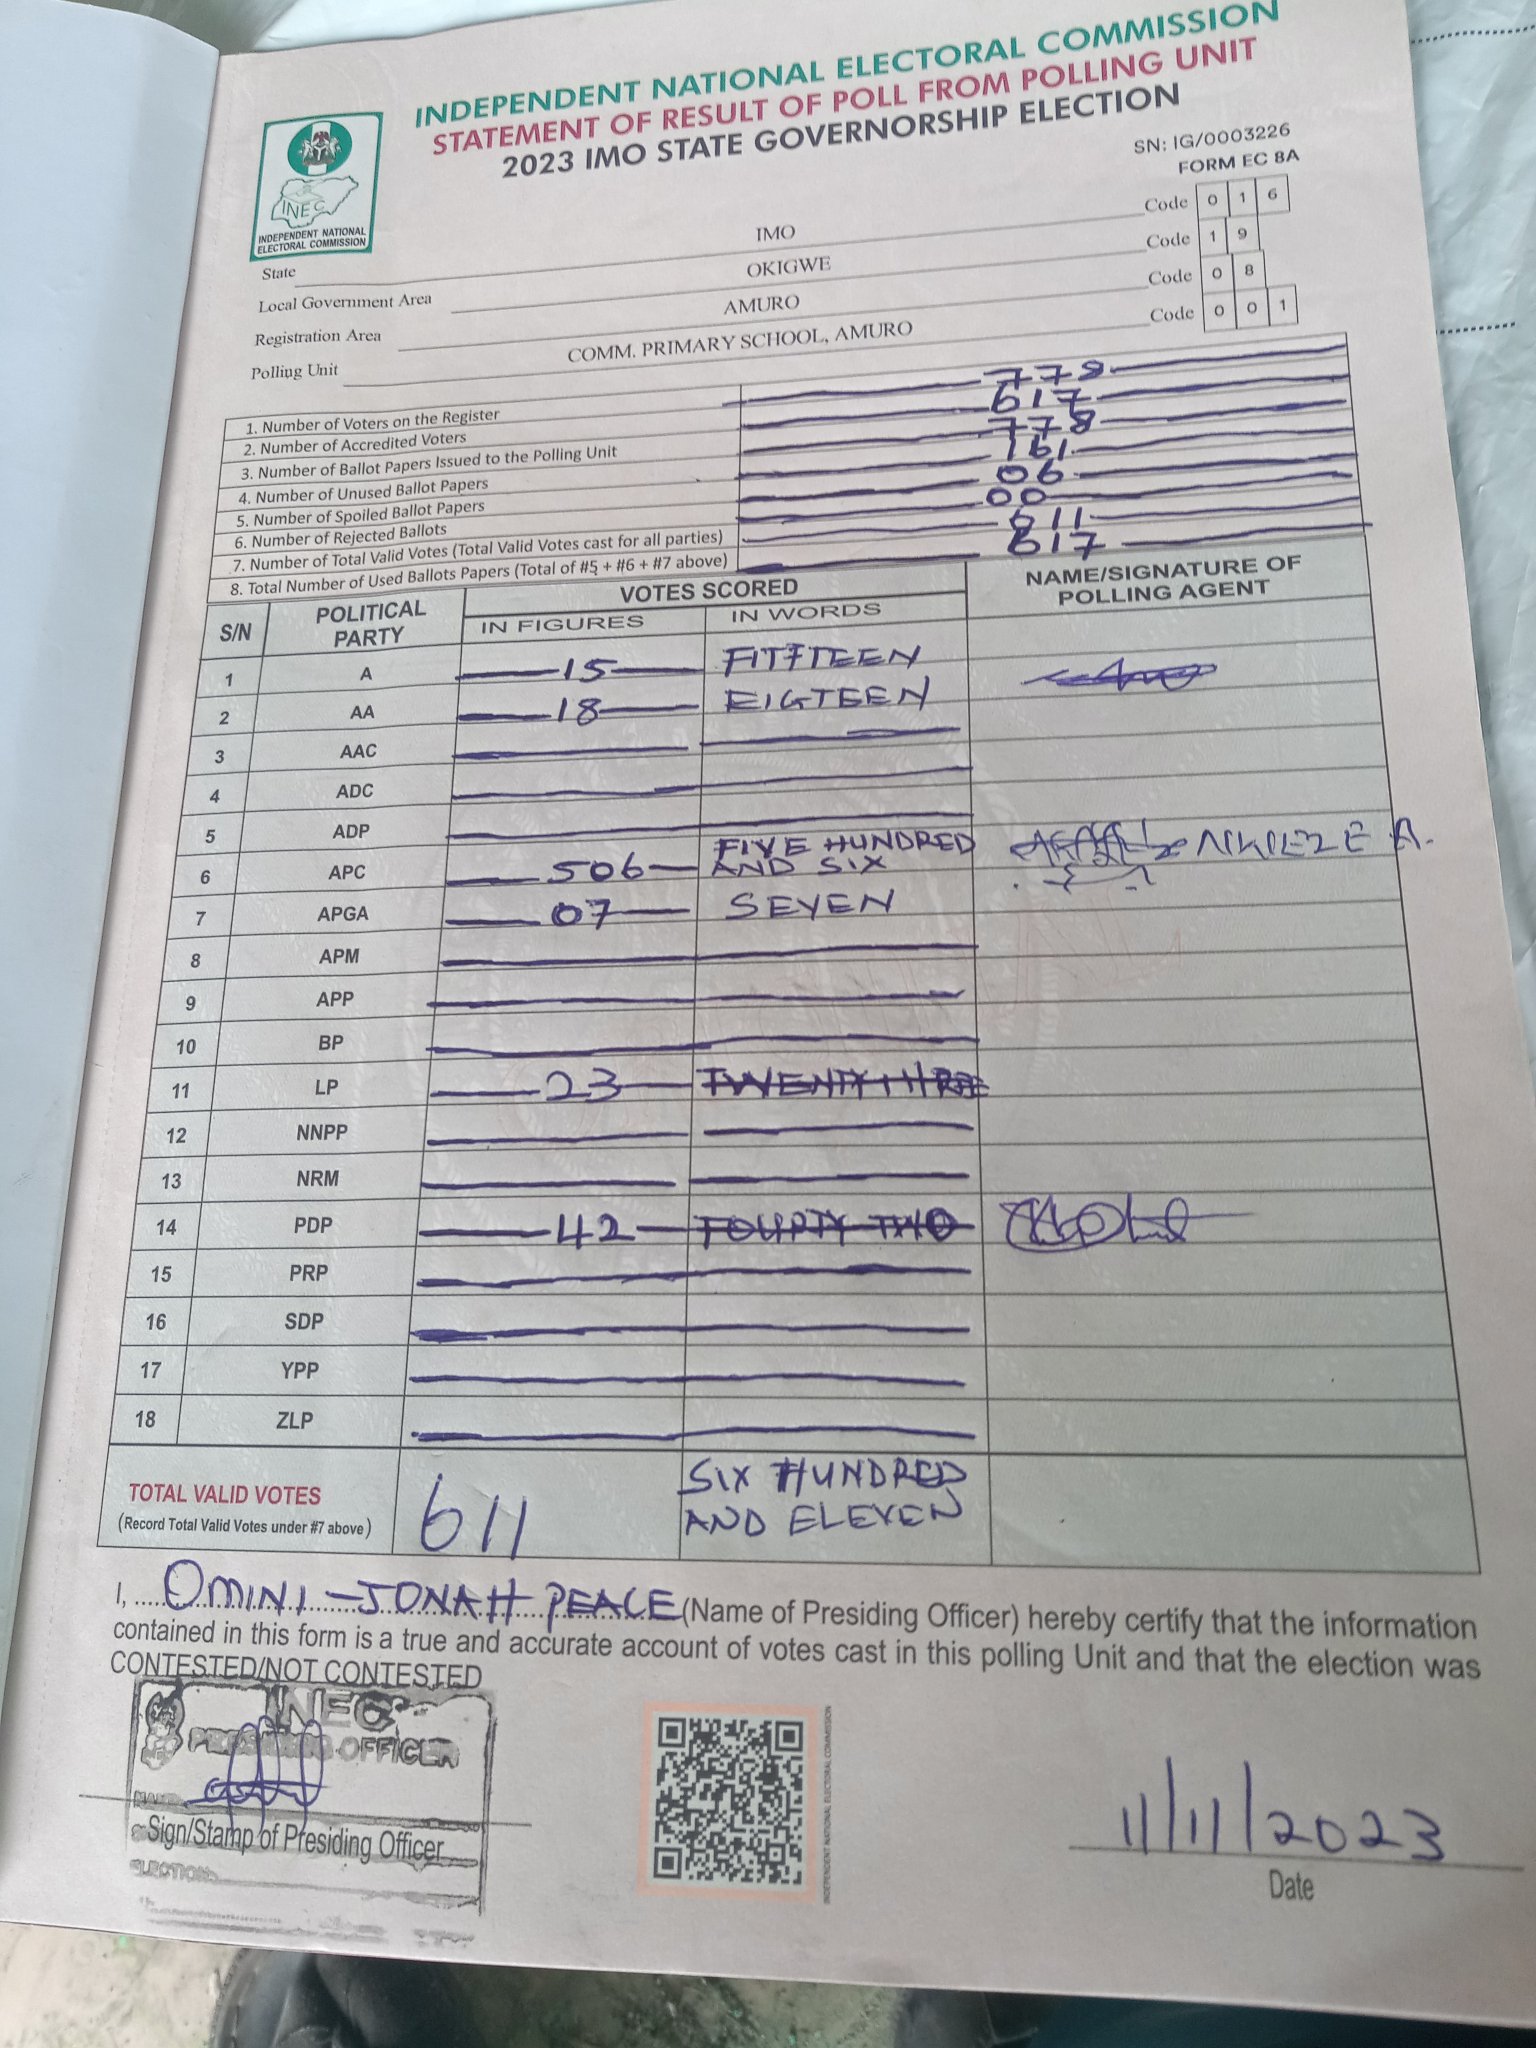 INDEPENDENT NATIONAL ELECTORAL COMMISSION
STATEMENT OF RESULT OF POLL FROM POLLING UNIT
2023 IMO STATE GOVERNORSHIP ELECTION
SN: IG/0003226
FORM EC 8A
INEC
INDEPENDENT NATIONAL
ELECTORAL COMMISSION
State IMO Code 0 1 6
Local Government Area OKIGWE Code 1 9
Registration Area AMURO Code 0 8
Polling Unit COMM. PRIMARY SCHOOL, AMURO Code 0 0 1
1. Number of Voters on the Register 778
2. Number of Accredited Voters 617
3. Number of Ballot Papers Issued to the Polling Unit 778
4. Number of Unused Ballot Papers 161
5. Number of Spoiled Ballot Papers 06
6. Number of Rejected Ballots 00
7. Number of Total Valid Votes (Total Valid Votes cast for all parties) 611
8. Total Number of Used Ballots Papers (Total of #5 + #6 + #7 above) 617
S/N POLITICAL PARTY VOTES SCORED NAME/SIGNATURE OF POLLING AGENT
IN FIGURES IN WORDS
1 A 15 FITFTEEN
2 AA 18 EIGTEEN
3 AAC
4 ADC
5 ADP
6 APC 506 FIVE HUNDRED AND SIX
7 APGA 07 SEVEN
8 APM
9 APP
10 BP
11 LP 23 TWENTY THREE
12 NNPP
13 NRM
14 PDP 42 FOURTY TWO
15 PRP
16 SDP
17 YPP
18 ZLP
TOTAL VALID VOTES 611 SIX HUNDRED
(Record Total Valid Votes under #7 above) AND ELEVEN
I, OMINI-JONAH PEACE (Name of Presiding Officer) hereby certify that the information
contained in this form is a true and accurate account of votes cast in this polling Unit and that the election was
CONTESTED/NOT CONTESTED
INEC
PRESIDING OFFICER
Sign/Stamp of Presiding Officer
ELECTION
INDEPENDENT NATIONAL ELECTORAL COMMISSION
11/11/2023
Date